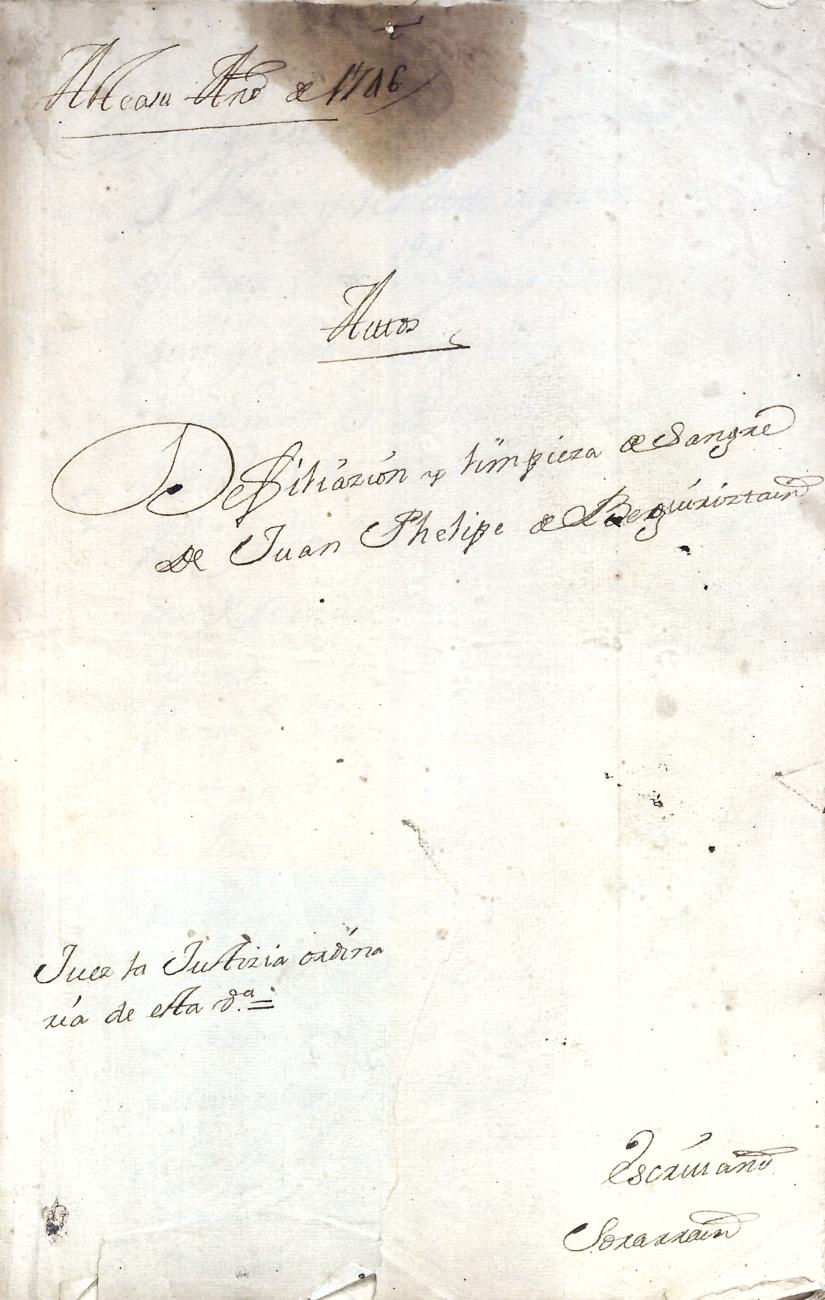 Atteasu Año de 1746
Autos
De Filiázión y limpieza de Sangre
De Juan Phelipe de Beguiriztain
Juez la Justizia ordina
ria de esta va.
Escriuano
Sorarrain